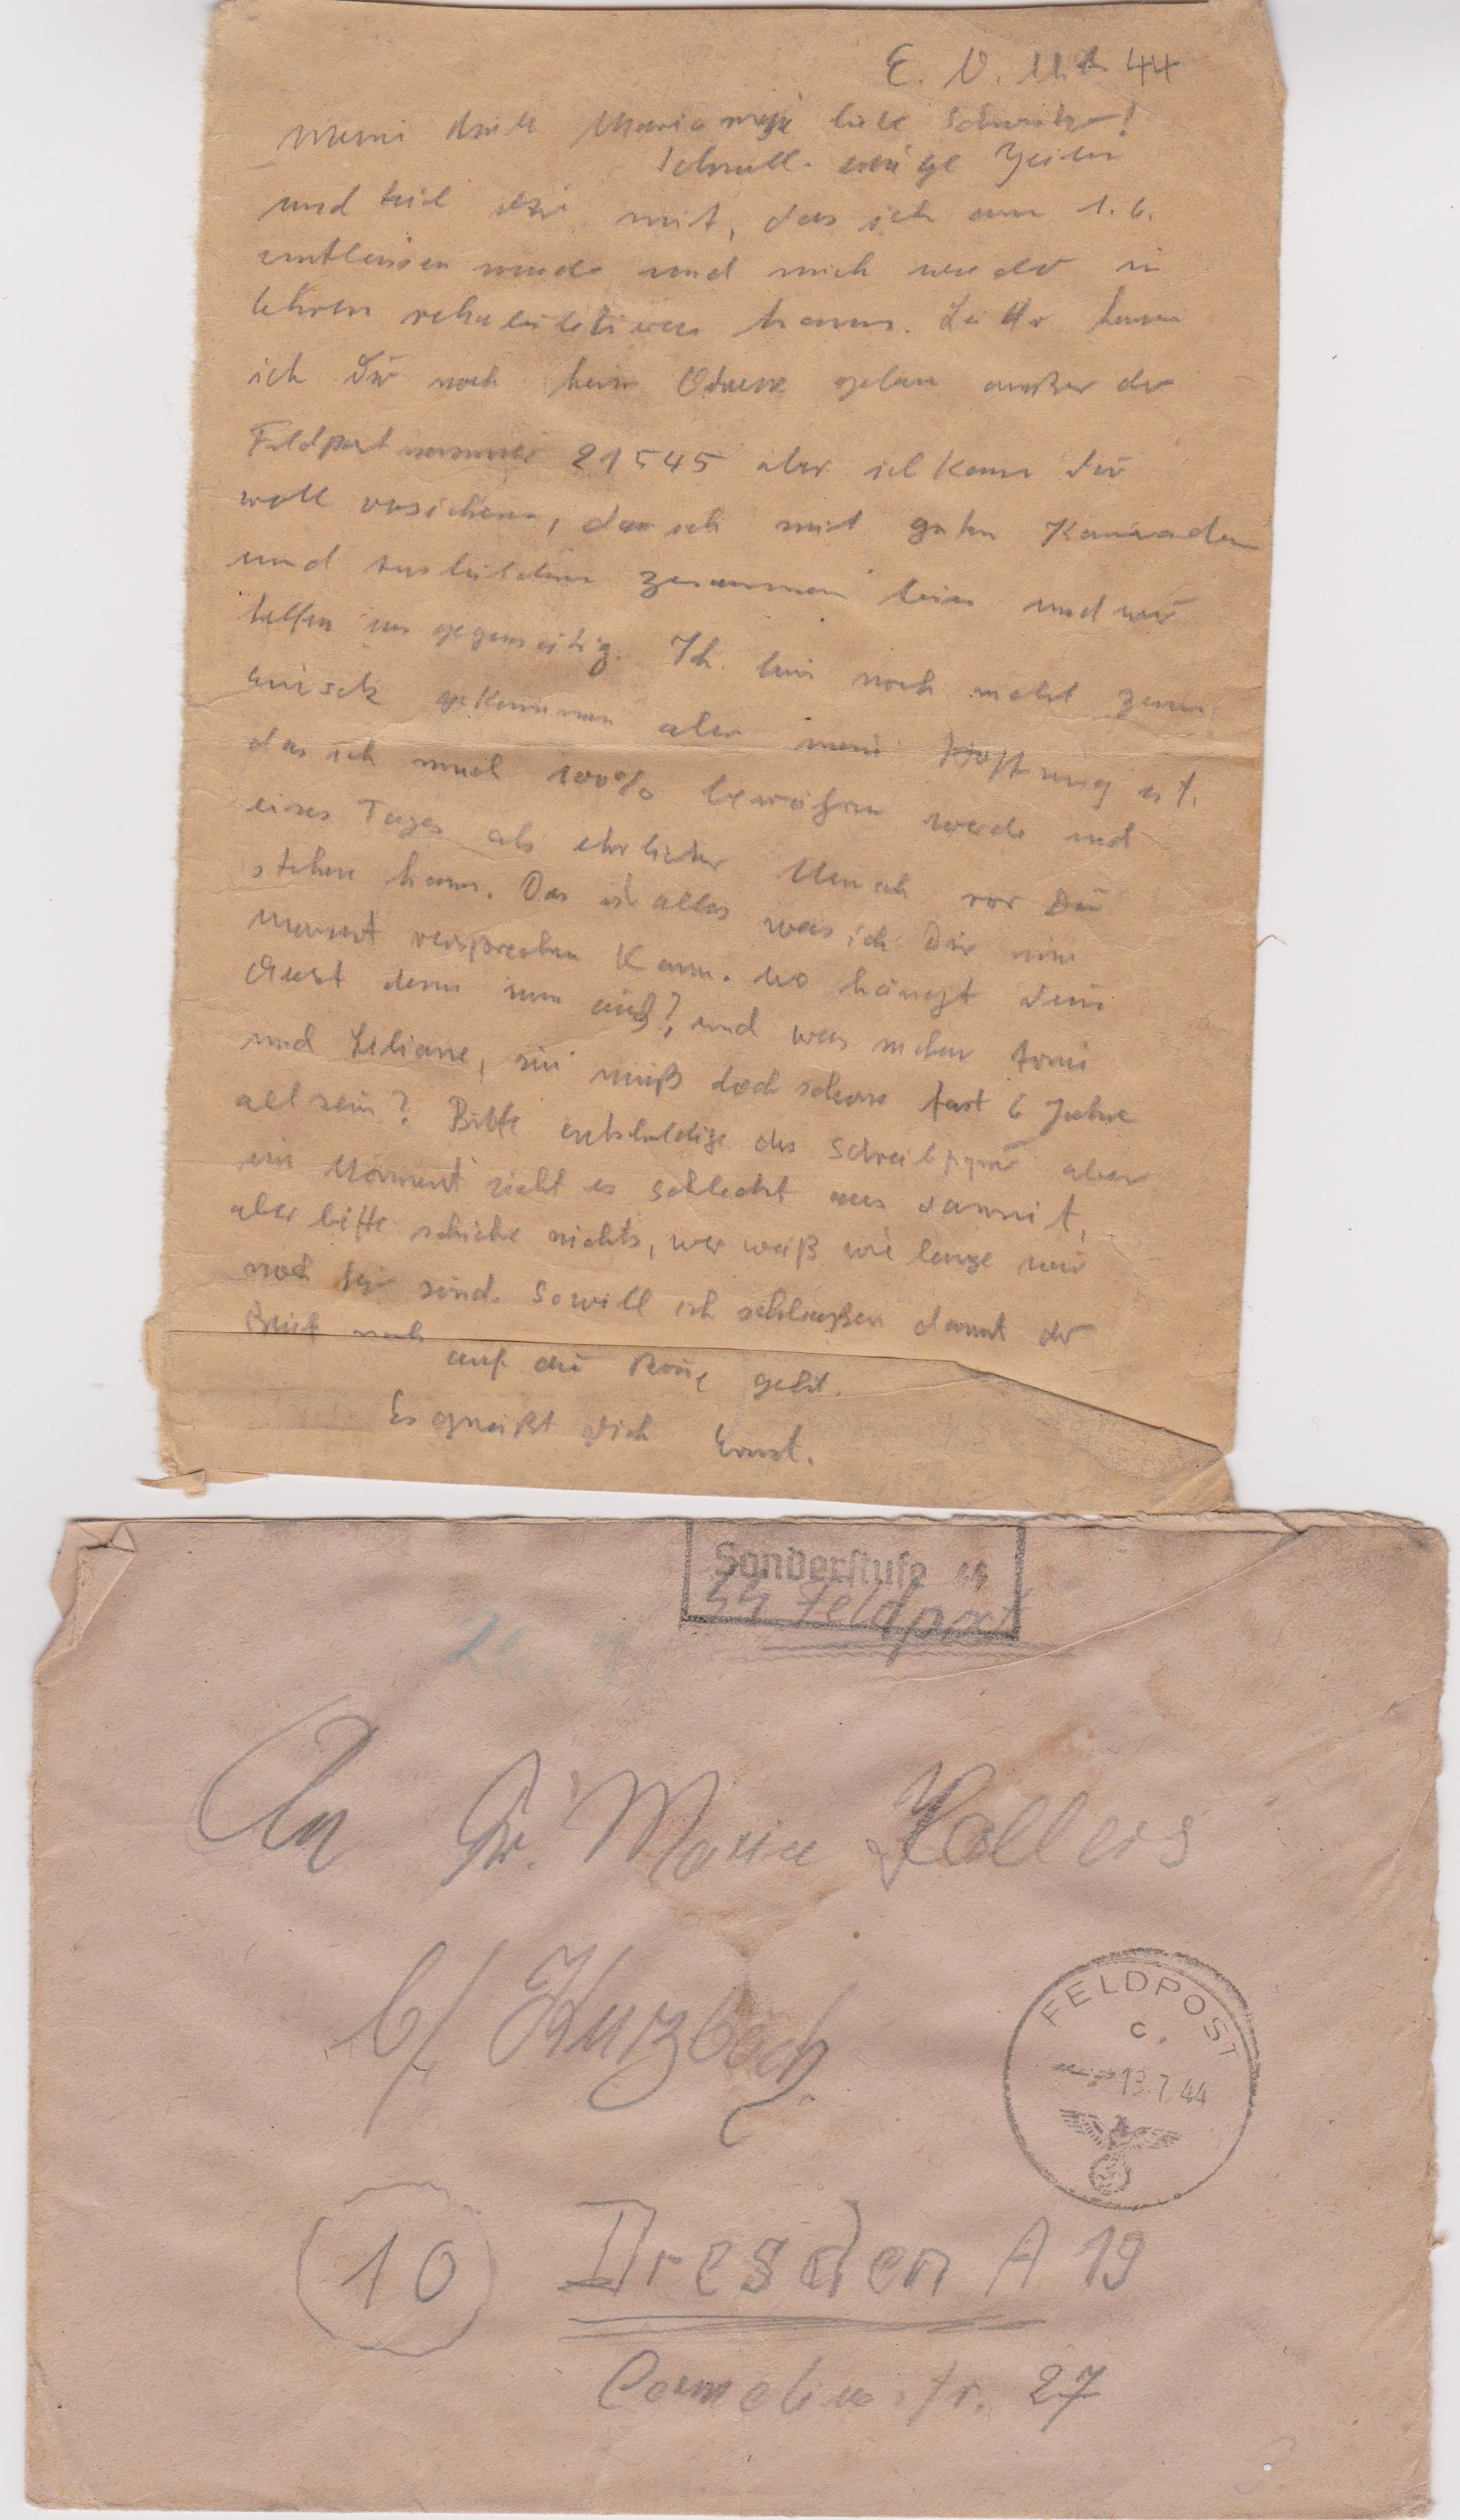 E. O. 11. 44
Meine Maria meine liebe Schwester!
Schnell einige Zeilen
und teile mit, das ich am 1. 6.
entlassen wurde und mich wieder in
rehabilitieren kann. Leider kann
ich Dir noch kein Adresse geben außer der
Feldpostnummer 21545 aber ich kann Dir
woll versichern, das ich mit guten Kameraden
und zusammen bin und wir
helfen uns gegenseitig. Ich bin noch nicht zum
Einsatz gekommen aber meine Hoffnung ist,
das ich mich 100% bewähren werde und
eines Tages als ehrlicher Mensch vor Dir
stehen kann. Das ist alles was ich Dir im
Moment versprechen kann. Wo hängt dein
denn nun aus?, und was machen
und Liliane, sie muß doch schon fast 6 Jahre
alt sein? Bitte entschuldige das Schreibpapier aber
im Moment sieht es schlecht aus damit,
aber bitte schicke nichts, wer weiß wie lange wir
noch hier sind. So will ich schließen damit der
Brief noch auf die Reise geht.
Es grüßt Dich Ernst.
Sonderstufe SS
SS Feldpost
An Fr. Maria Kollers
b/ Kurzbach
FELDPOST
c
13.7.44
(10) Dresden A 19
Corneliusstr. 27